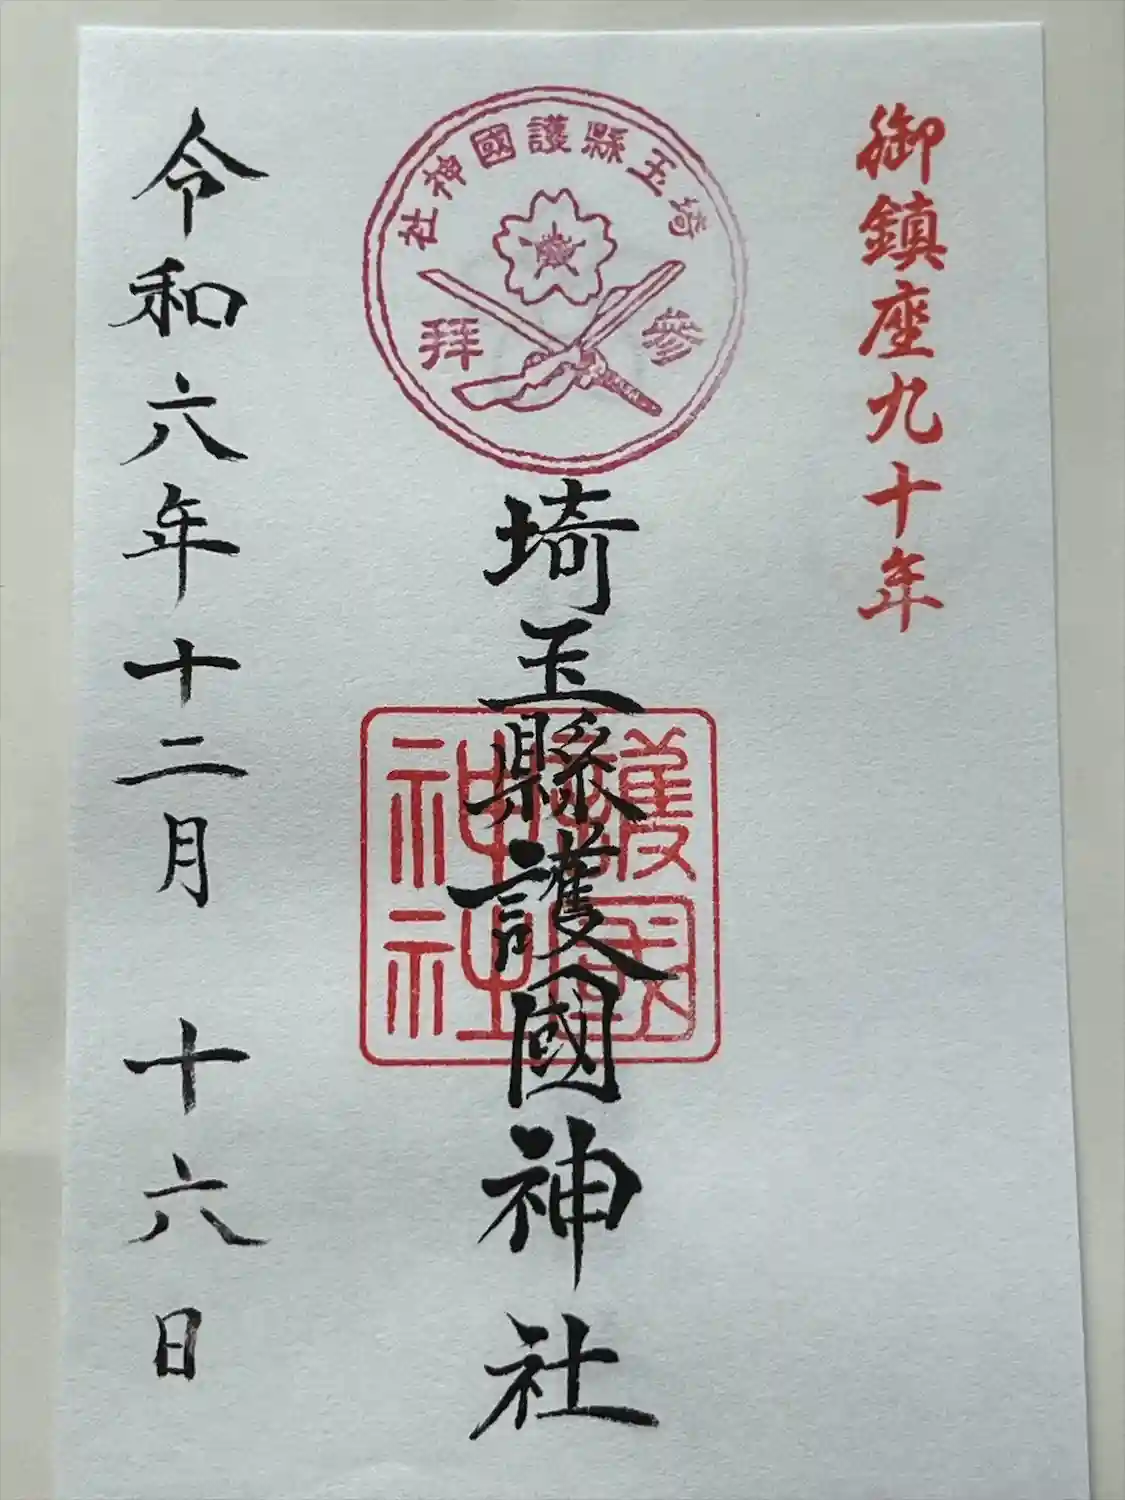 御鎮座九十年
埼玉縣護國神社
參拜
埼玉縣護國神社
護國
神社
令和六年十二月 十六日